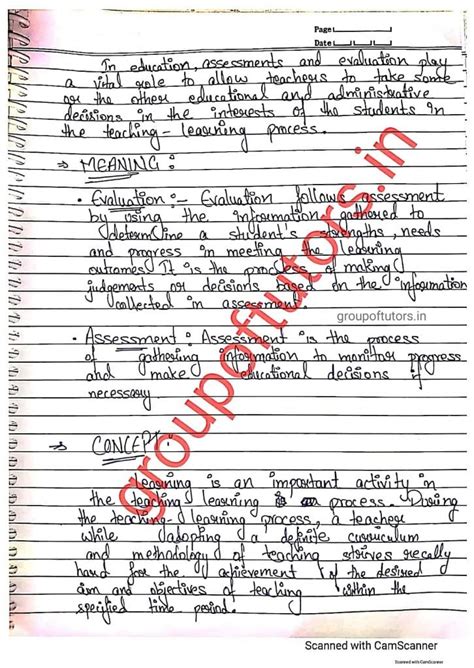 Page
Date
In education, assessments and evaluation play
a vital role to allow teachers to take some
or the other educational and administrative
decisions in the interests of the students in
the teaching-learning process.
⇒ MEANING :
• Evaluation :- Evaluation follows assessment
by using the information gathered to
determine a student's strengths, needs
and progress in meeting the learning
outcomes. It is the process of making
judgements or decisions based on the information
collected in assessment.
groupoftutors.in
• Assessment : Assessment is the process
of gathering information to monitor progress
and make educational decisions if
necessary
⇒ CONCEPT :
Learning is an important activity in
the teaching learning process. During
the teaching-learning process, a teacher
while adopting a definite curriculum
and methodology of teaching strives really
hard for the achievement of the desired
aim and objectives of teaching within the
specified time period.
groupoftutors.in
Scanned with CamScanner
Scanned with CamScanner